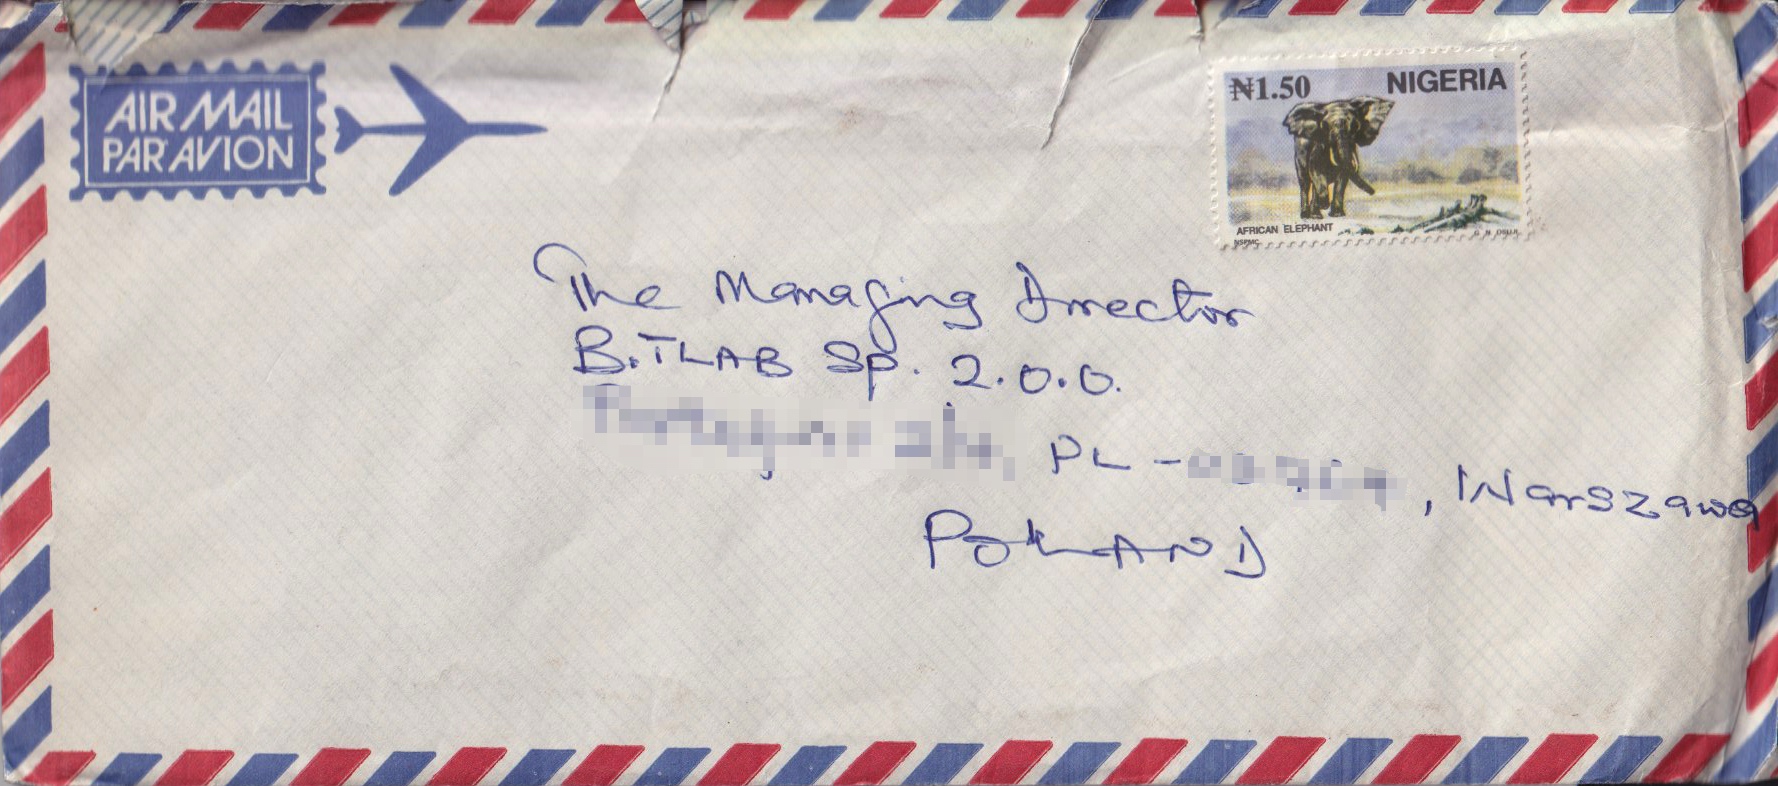 AIR MAIL
PAR AVION
₦1.50 NIGERIA
AFRICAN ELEPHANT
NSPMC G. N. OSUJI
The Managing Director
BiTLAB Sp. 2.0.0.
PL -
, Warszawa
POLAND